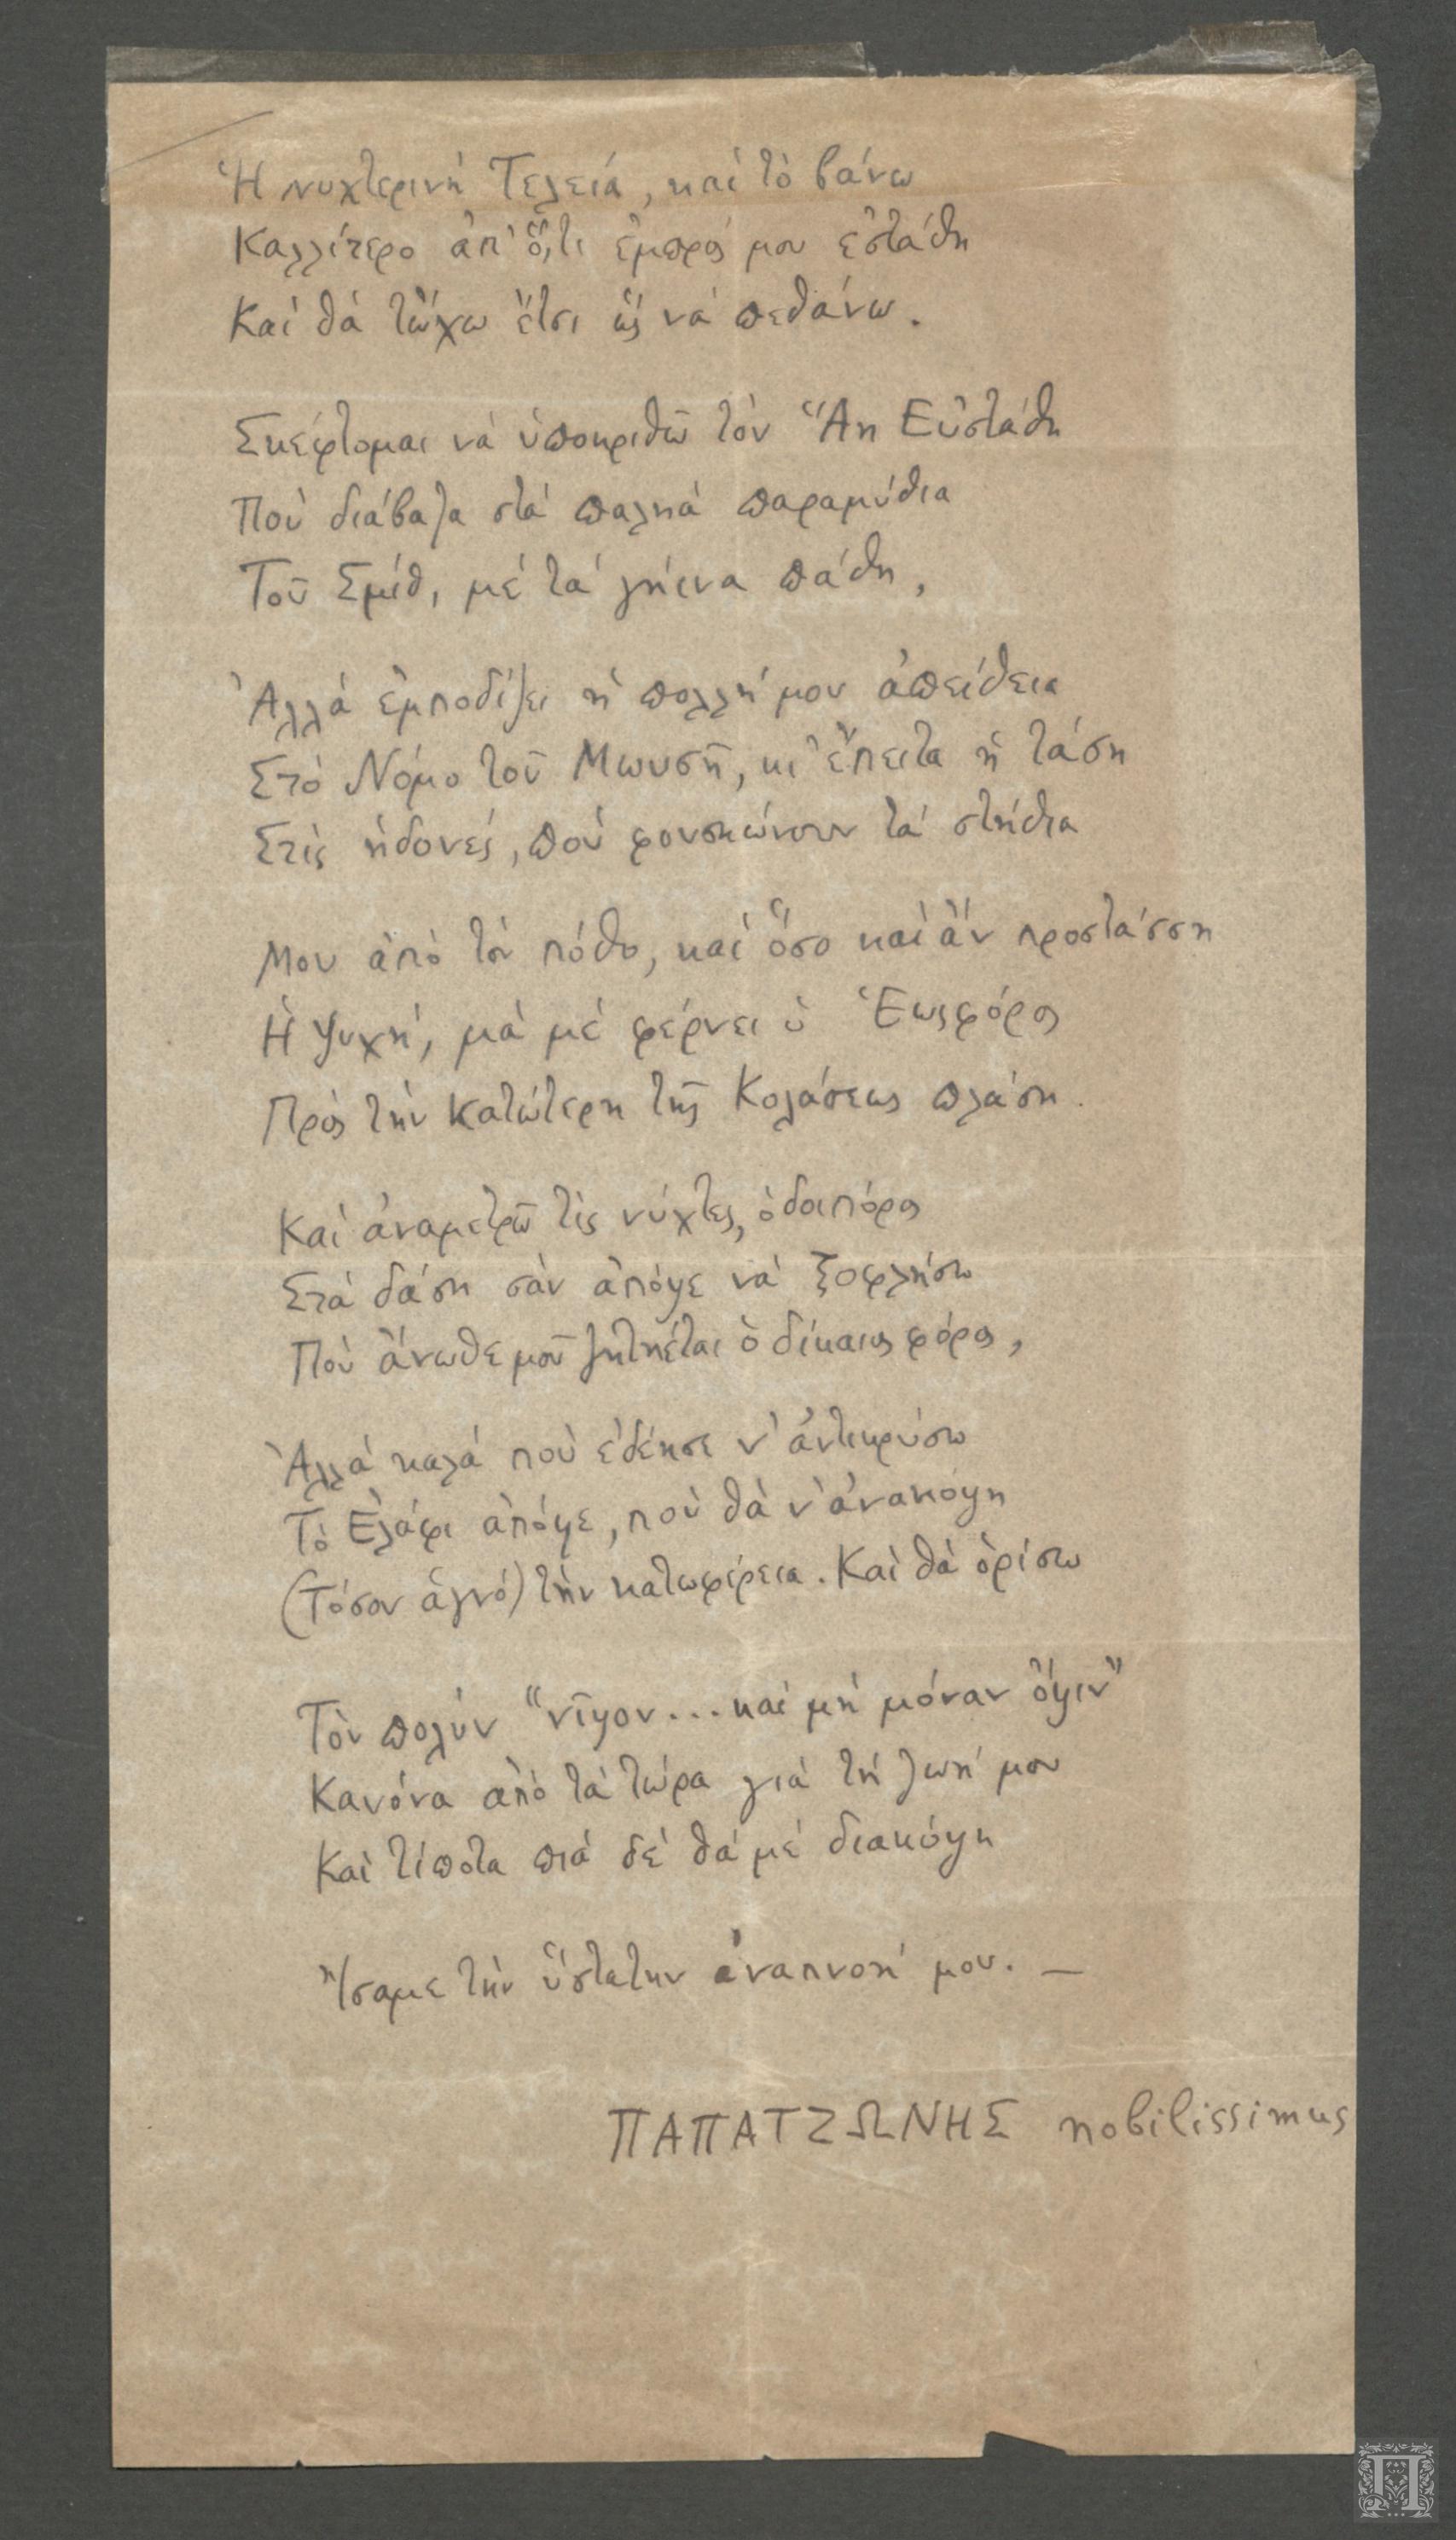 Ἡ νυχτερινὴ Τελειά, καὶ τὸ βάνω
Καλλίτερο ἀπ' ὅ,τι ἐμπρός μου ἐστάθη
Καὶ θὰ τὤχω ἔτσι ὣς νὰ πεθάνω.
Σκέφτομαι νὰ ὑποκριθῶ τὸν Ἅη Εὐστάθη
Ποὺ διάβαζα στὰ παληὰ παραμύθια
Τοῦ Σμίθ, μὲ τὰ γήινα πάθη,
Ἀλλὰ ἐμποδίζει ἡ πολλή μου ἀπείθεια
Στὸ Νόμο τοῦ Μωυσῆ, κι' ἔπειτα ἡ τάση
Στὶς ἡδονές, ποὺ φουσκώνουν τὰ στήθια
Μου ἀπὸ τὸν πόθο, καὶ ὅσο καὶ ἂν προστάσση
Ἡ ψυχή, μὰ μὲ φέρνει ὁ Ἑωσφόρος
Πρὸς τὴν κατώτερη τῆς Κολάσεως πλάση.
Καὶ ἀναμετρῶ τὶς νύχτες, ὁδοιπόρος
Στὰ δάση σὰν ἀπόψε νὰ ξοφλήσω
Ποὺ ἄνωθε μοῦ ζητιέται ὁ δίκαιος φόρος,
Ἀλλὰ καλὰ ποὺ ἐδέησε ν' ἀντικρύσω
Τὸ Ἐλάφι ἀπόψε, ποὺ θὰ ν' ἀνακόψη
(Τόσον ἁγνό) τὴν κατωφέρεια. Καὶ θὰ ὁρίσω
Τὸν πολὺν "νῖψον... καὶ μὴ μόναν ὄψιν"
Κανόνα ἀπὸ τὰ τώρα γιὰ τὴ ζωή μου
Καὶ τίποτα πιὰ δὲ θὰ μὲ διακόψη
Ἴσαμε τὴν ὕστατην ἀναπνοή μου. —
ΠΑΠΑΤΖΩΝΗΣ nobilissimus